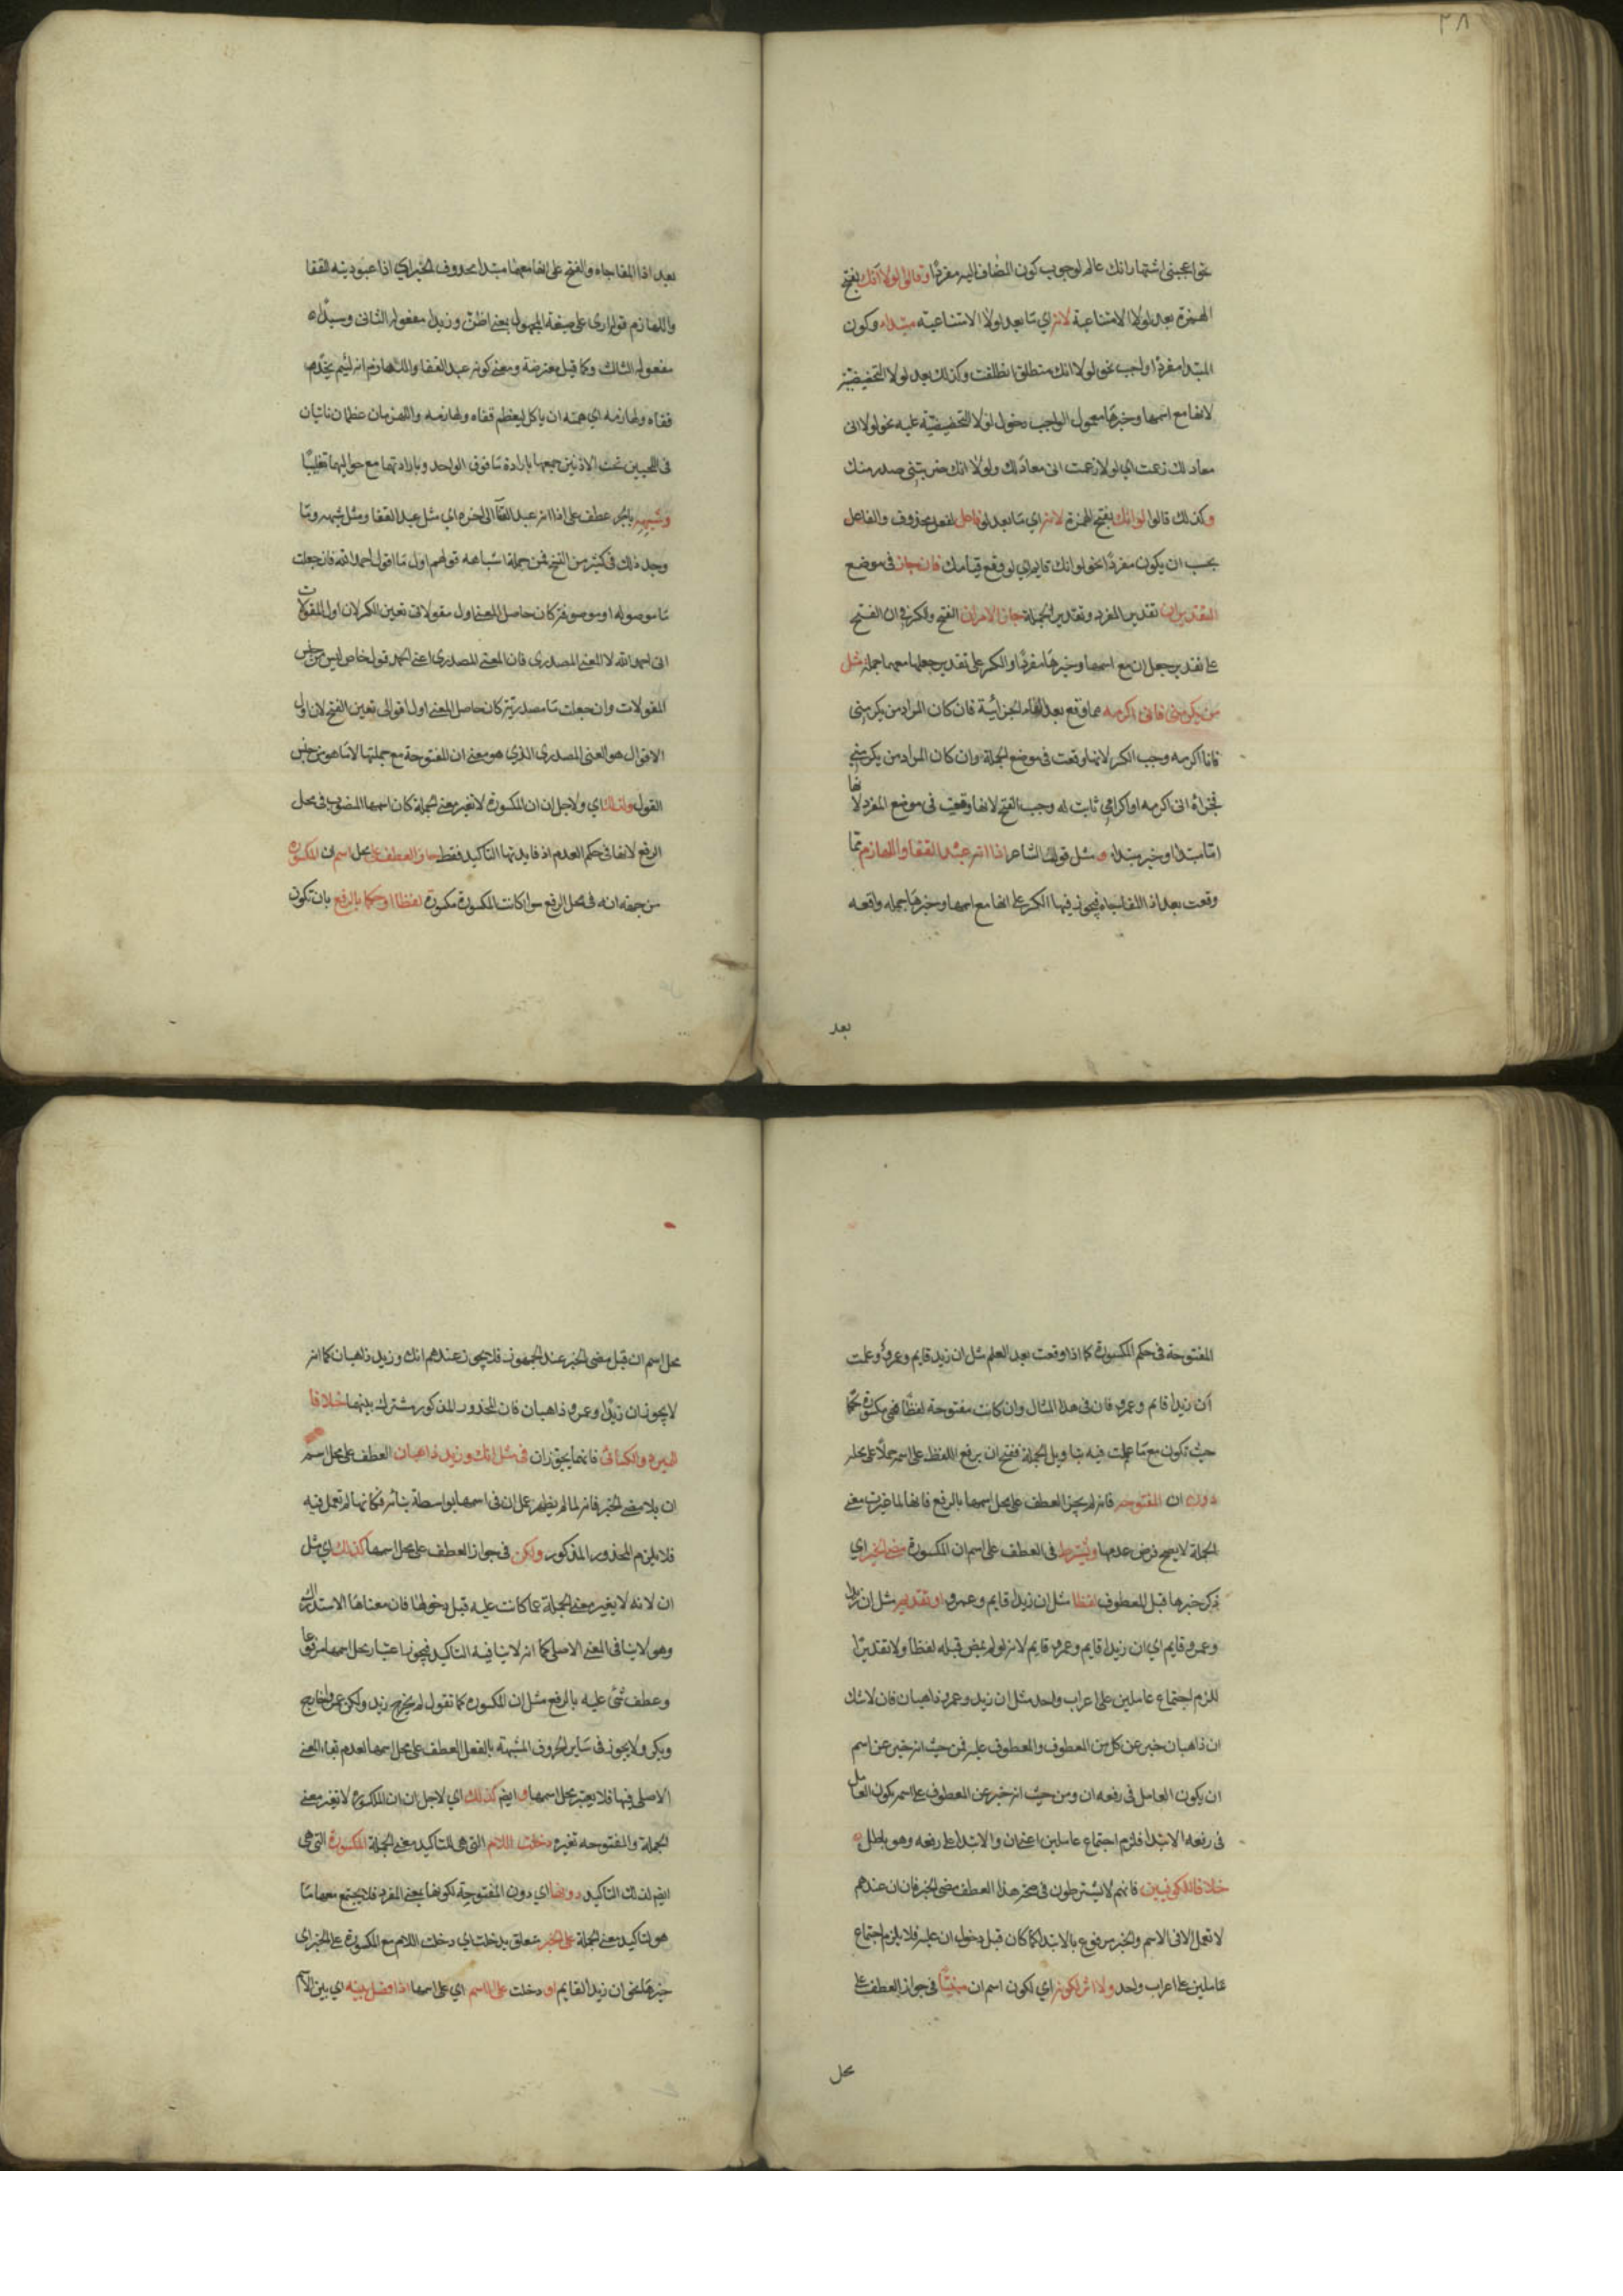 ٣٨
نحو اعجبنى اشتهار انك عالم لوجوب كون المضاف اليه مفردًا وقالوا لولا انك بفتح
الهمزة بعد لولا الامتناعية لانه اي ما بعد لولا الامتناعية مبتداء وكون
المبتدا مفردًا واجب نحو لولا انك منطلق انطلقت وكذلك بعد لولا التحضيضية
لانها مع اسمها وخبرها معمول الواجب دخول لولا التحضيضية عليه نحو لولا انى
معاد لك زعمت اي لولا زعمت انى معاد لك ولولا انك ضربتنى صدر منك
وكذلك قالوا لو انك بفتح الهمزة لانه اي ما بعد لو فاعل لفعل محذوف والفاعل
يجب ان يكون مفردًا نحو لو انك قايم اي لو وقع قيامك فان جاز فى موضع
التقديران تقدير المفرد وتقدير الجملة جاز الامران الفتح والكسر فى ان الفتح
على تقدير جعل ان مع اسمها وخبرها مفردًا والكسر على تقدير جعلها معهما جملة مثل
من يكرمنى فانى اكرمه مما وقع بعد الفاء الجزائية فان كان المراد من يكرمنى
فانا اكرمه وجب الكسر لانها وقعت فى موضع الجملة وان كان المراد من يكرمنى
فجزاؤه انى اكرمه او اكرامى ثابت له وجب الفتح لانها وقعت فى موضع المفرد لانها
اما مبتدا او خبر مبتداء ومثل قول الشاعر اذا انه عبد القفا واللهازم مما
وقعت بعد اذا المفاجاه فيجوز فيها الكسر على انها مع اسمها وخبرها جمله واقعه
بعد
بعد اذا المفاجاه والفتح على انها معهما مبتدا محذوف الخبر اي اذا عبوديته القفا
واللهازم قوله ارى على صيغة المجهول بمعنى اظن وزيدا مفعوله الثانى وسيدًا
مفعوله الثالث وكما قيل معترضة ومعنى كونه عبد القفا واللهازم انه لئيم يخدم
قفاه ولهازمه اي همته ان ياكل ليعظم قفاه ولهازمه واللهزمان عظمان ناتيان
فى اللحيين تحت الاذنين جمعها بارادة ما فوق الواحد وبارادتهما مع حواليهما تغليبًا
وشبهه بالجر عطف على اذا انه عبد القفا الى اخره اي مثل عبد القفا ومثل شبهه ومما
وجد ذلك فى كثير من النسخ فمن جملة اشباهه قولهم اول ما اقول احمد الله فان جعلت
ما موصوله او موصوفة كان حاصل المعنى اول مقولاتى تعين الكسر لان اول المقولات
انى احمد الله لا المعنى المصدرى فان المعنى المصدرى اعنى الحمد قول خاص ليس من جنس
المقولات وان جعلت ما مصدرية كان حاصل المعنى اول اقوالى تعين الفتح لان اول
الاقوال هو المعنى المصدرى الذي هو معنى ان المفتوحة مع جملتها لا ما هو من جنس
القول ولذلك اي ولاجل ان ان المكسورة لا تغير معنى الجملة كان اسمها المنصوب فى محل
الرفع لانها فى حكم العدم اذ فايدتها التاكيد فقط جاز العطف على محل اسم ان المكسورة
من جهه انه فى محل الرفع سوا كانت المكسورة مكسورة لفظا او حكما بالرفع بان تكون
المفتوحة فى حكم المكسورة كما اذا وقعت بعد العلم مثل ان زيد قايم وعمرو وعلمت
أن زيدا قايم وعمرو فان فى هذا المثال وان كانت مفتوحة لفظًا فهى مكسورة حكمًا
حيث تكون مع ما عملت فيه بتاويل الجملة فصح ان يرفع اللفظ على اسمه حملًا على محله
دون ان المفتوحه فانه لم يجز العطف على محل اسمها بالرفع فانها لما غيرت معنى
الجملة لا يصح فرض عدمها ويشترط فى العطف على اسم ان المكسورة مضى الخبر اي
ذكر خبرها قبل المعطوف لفظا مثل ان زيدا قايم وعمرو او تقديرا مثل ان زيدا
وعمرو قايم اي ان زيدا قايم وعمرو قايم لانه لو لم يمض قبله لفظا ولا تقديرًا
للزم اجتماع عاملين على اعراب واحد مثل ان زيد وعمرو ذاهبان فان لا شك
ان ذاهبان خبر عن كل من المعطوف والمعطوف عليه فمن حيث انه خبر عن اسم
ان يكون العامل فى رفعه ان ومن حيث انه خبر عن المعطوف على اسمه يكون العامل
فى رفعه الابتدا فلزم اجتماع عاملين اعنى ان والابتدا على رفعه وهو باطل
خلافا للكوفيين فانهم لا يشترطون فى صحة هذا العطف مضى الخبر فان ان عندهم
لا تعمل الا فى الاسم والخبر مرفوع بالابتدا كما كان قبل دخول ان عليه فلا يلزم اجتماع
عاملين على اعراب واحد ولا اثر لكونه اي لكون اسم ان مبنيًا فى جواز العطف على
محل
محل اسم ان قبل مضى الخبر عند الجمهور فلا يجوز عندهم انك وزيد ذاهبان كما انه
لا يجوز ان زيدًا وعمرو ذاهبان فان المحذور المذكور مشترك بينهما خلافا
للمبرد والكسائى فانهما يجوزان فى مثل انك وزيد ذاهبان العطف على محل اسم
ان بلا مضى الخبر فانه لما لم يظهر عمل ان فى اسمها بواسطة بنائه فكانها لم تعمل فيه
فلا يلزم المحذور المذكور ولكن فى جواز العطف على محل اسمها كذلك اي مثل
ان لانه لا يغير معنى الجملة عما كانت عليه قبل دخولها فان معناها الاستدراك
وهو لا ينافى المعنى الاصلى كما انه لا ينافيه التاكيد فيجوز اعتبار محل اسمها مرفوعا
وعطف شئ عليه بالرفع مثل ان المكسوره كما تقول لم يخرج زيد ولكن عمروا خارج
وبكر ولا يجوز فى ساير الحروف المشبهة بالفعل العطف على محل اسمها لعدم بقاء المعنى
الاصلى فيها فلا يعتبر محل اسمها وايضا كذلك اي لاجل ان ان المكسورة لا تغير معنى
الجملة والمفتوحه تغيره دخلت اللام التى هى لتاكيد معنى الجملة المكسورة التى هى
ايضا لذلك التاكيد دونها اي دون المفتوحة لكونها بمعنى المفرد فلا يجتمع معها ما
هو لتاكيد معنى الجملة على الخبر متعلق بدخلت اي دخلت اللام مع المكسورة على الخبر اى
خبرها نحو ان زيدا لقايم او دخلت على الاسم اي على اسمها اذا فصل بينه اي بين الاسم